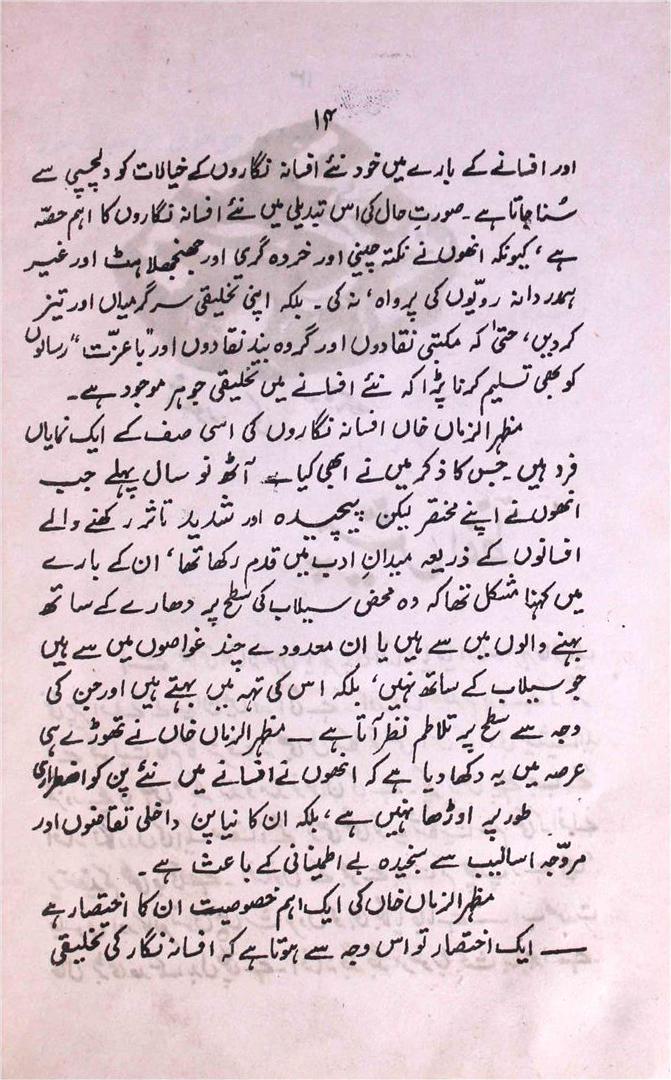 ۱۴
اور افسانے کے بارے میں خود نئے افسانہ نگاروں کے خیالات کو دلچسپی سے
سُنا جاتا ہے۔ صورتِ حال کی اس تبدیلی میں نئے افسانہ نگاروں کا اہم حصّہ
ہے، کیونکہ انھوں نے نکتہ چینی اور خردہ گری اور جھنجھلاہٹ اور غیر
ہمدردانہ رویّوں کی پرواہ، نہ کی۔ بلکہ اپنی تخلیقی سرگرمیاں اور تیز
کردیں، حتیٰ کہ مکتبی نقادوں اور گروہ بند نقادوں اور "باعزّت" رسالوں
کو بھی تسلیم کرنا پڑا کہ نئے افسانے میں تخلیقی جوہر موجود ہے۔
مظہر الزماں خاں افسانہ نگاروں کی اسی صف کے ایک نمایاں
فرد ہیں۔ جس کا ذکر میں نے ابھی کیا ہے آٹھ نو سال پہلے جب
انھوں نے اپنے مختصر لیکن پیچیدہ اور شدید تاثر رکھنے والے
افسانوں کے ذریعہ میدانِ ادب میں قدم رکھا تھا، ان کے بارے
میں کہنا مشکل تھا کہ وہ محض سیلاب کی سطح پر دھارے کے ساتھ
بہنے والوں میں سے ہیں یا ان معدودے چند غواصوں میں سے ہیں
جو سیلاب کے ساتھ نہیں، بلکہ اس کی تہہ میں بہتے ہیں اور جن کی
وجہ سے سطح پر تلاطم نظر آتا ہے ۔ مظہر الزماں خاں نے تھوڑے ہی
عرصہ میں یہ دکھا دیا ہے کہ انھوں نے افسانے میں نئے پن کو اضطراری
طور پر اوڑھا نہیں ہے، بلکہ ان کا نیا پن داخلی تقاضوں اور
مروّجہ اسالیب سے سنجیدہ بے اطمینانی کے باعث ہے۔
مظہر الزماں خاں کی ایک اہم خصوصیت ان کا اختصار ہے
— ایک اختصار تو اس وجہ سے ہوتا ہے کہ افسانہ نگار کی تخلیقی